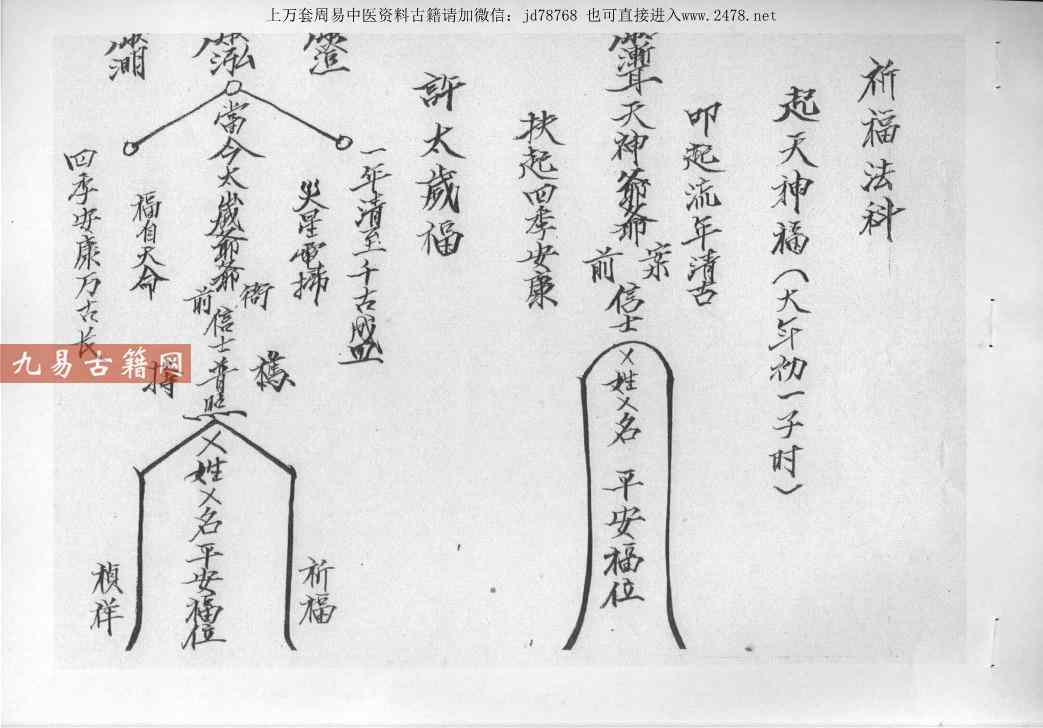 上万套周易中医资料古籍请加微信：jd78768 也可直接进入www.2478.net
祈福法科
起天神福（大年初一子时）
叩起流年清古
天神爷爷
案前
信士
㐅姓㐅名 平安福位
扶起四季安康
許太歲福
一年清至一千古成
火星電掃
當今太歲爷爷
衙前
信士普照
㐅姓㐅名平安福位
祈福
福自天命
四季安康万古长
禎祥
九易古籍网